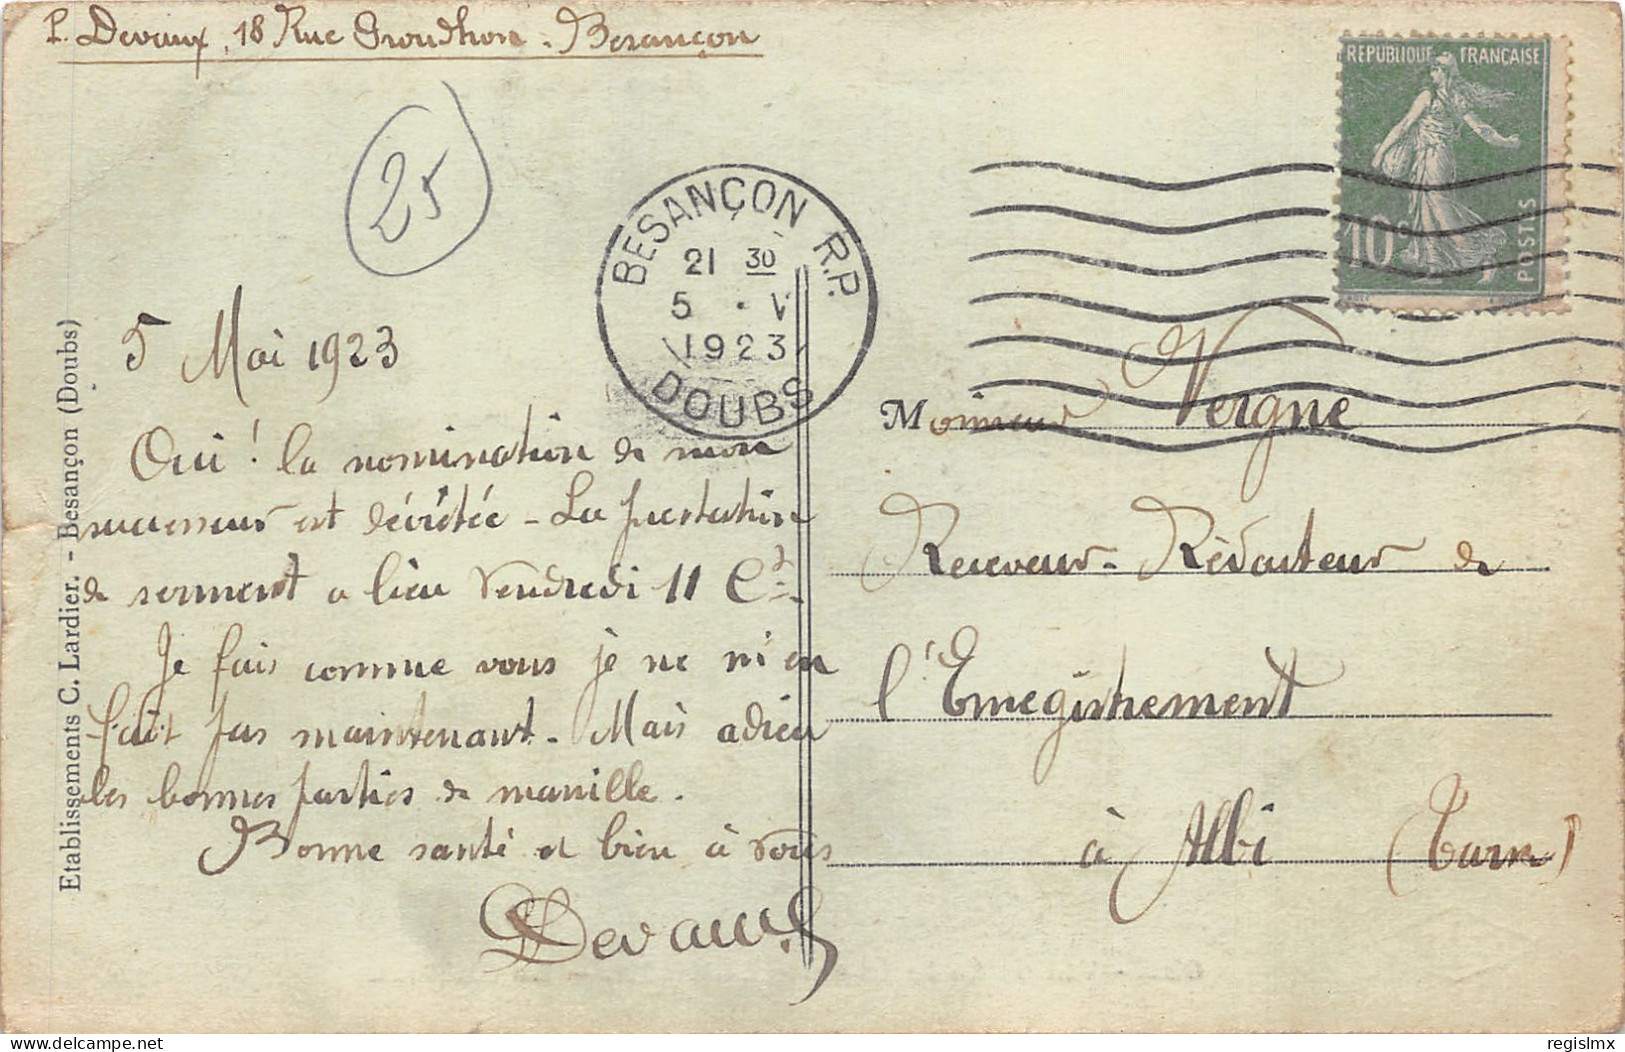 P. Devaux, 18 Rue Proudhon - Besançon
25
REPUBLIQUE FRANÇAISE
10c
POSTES
BESANÇON R.P.
21 30
5 · V
1923
DOUBS
5 Mai 1923
Oui ! la nomination de mon
successeur est décrétée - La prestation
de serment a lieu Vendredi 11 Ct.
Je fais comme vous je ne m'en
fait pas maintenant - Mais adieu
les bonnes parties de manille.
Bonne santé et bien à vous
Devaux
Monsieur Vergne
Receveur-Rédacteur de
l'Enregistrement
à Albi (Tarn)
Etablissements C. Lardier. - Besançon (Doubs)
delcampe.net
regislmx